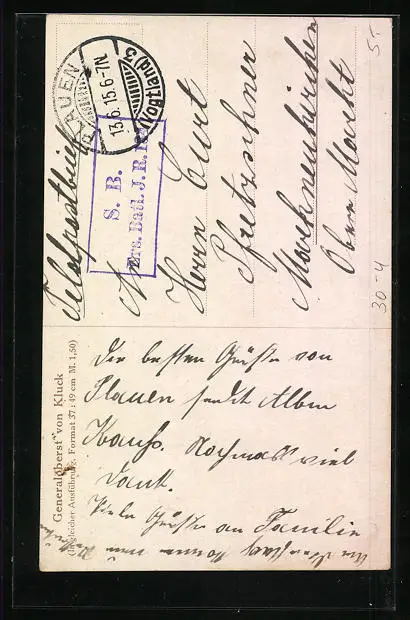 Feldpostbrief
PLAUEN
13.6.15.6-7N.
(Vogtland) 5
S. B.
Ers. Batl. J. R.
An
Herrn Curt
Pfretzschner
Markneukirchen
Oberer Markt
5.-
30-4
Generaloberst von Kluck
(In gleicher Ausführung: Format 37 : 49 cm M. 1,50)
Die besten Grüße von
Plauen sendet Albin
Nochmals viel
Dank.
Viele Grüße an Familie